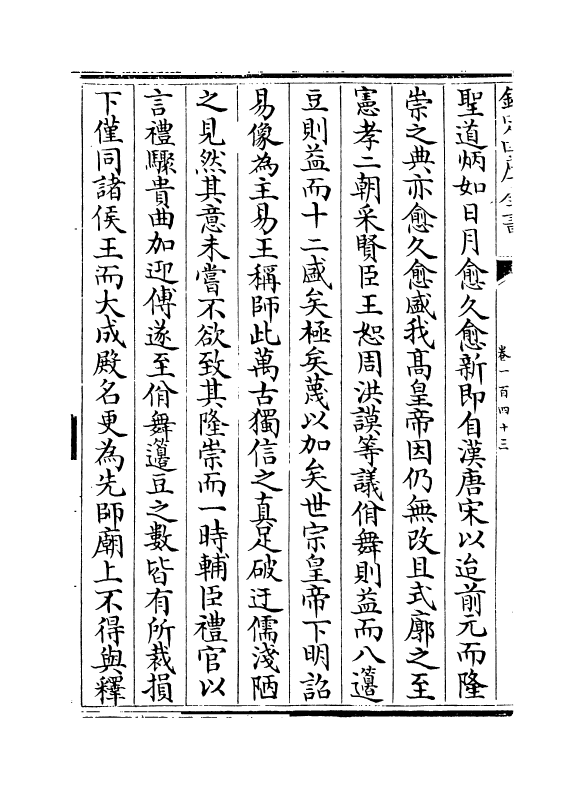 欽定四庫全書
卷一百四十三
聖道炳如日月愈久愈新即自漢唐宋以迨前元而隆
崇之典亦愈久愈盛我髙皇帝因仍無改且式廓之至
憲孝二朝采賢臣王恕周洪謨等議佾舞則益而八籩
豆則益而十二盛矣極矣蔑以加矣世宗皇帝下明詔
易像為主易王稱師此萬古獨信之真足破迂儒淺陋
之見然其意未嘗不欲致其隆崇而一時輔臣禮官以
言禮驟貴曲加迎傅遂至佾舞籩豆之數皆有所裁損
下僅同諸侯王而大成殿名更為先師廟上不得與釋